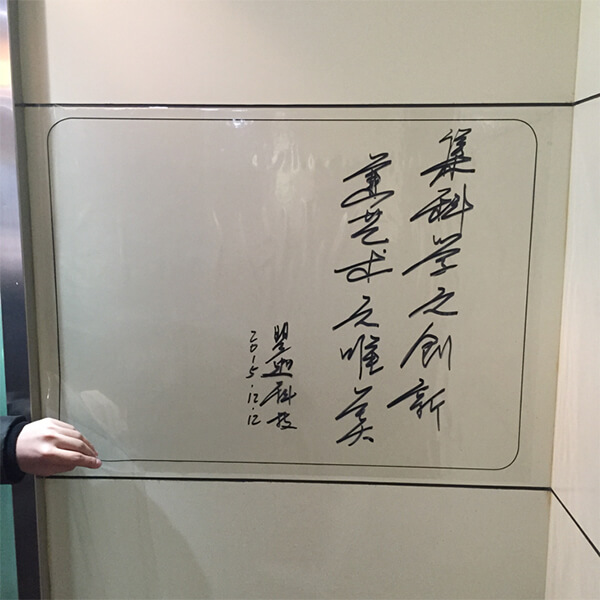 集科学之创新
兼艺术之唯美
盟迪科技
2015.12.12